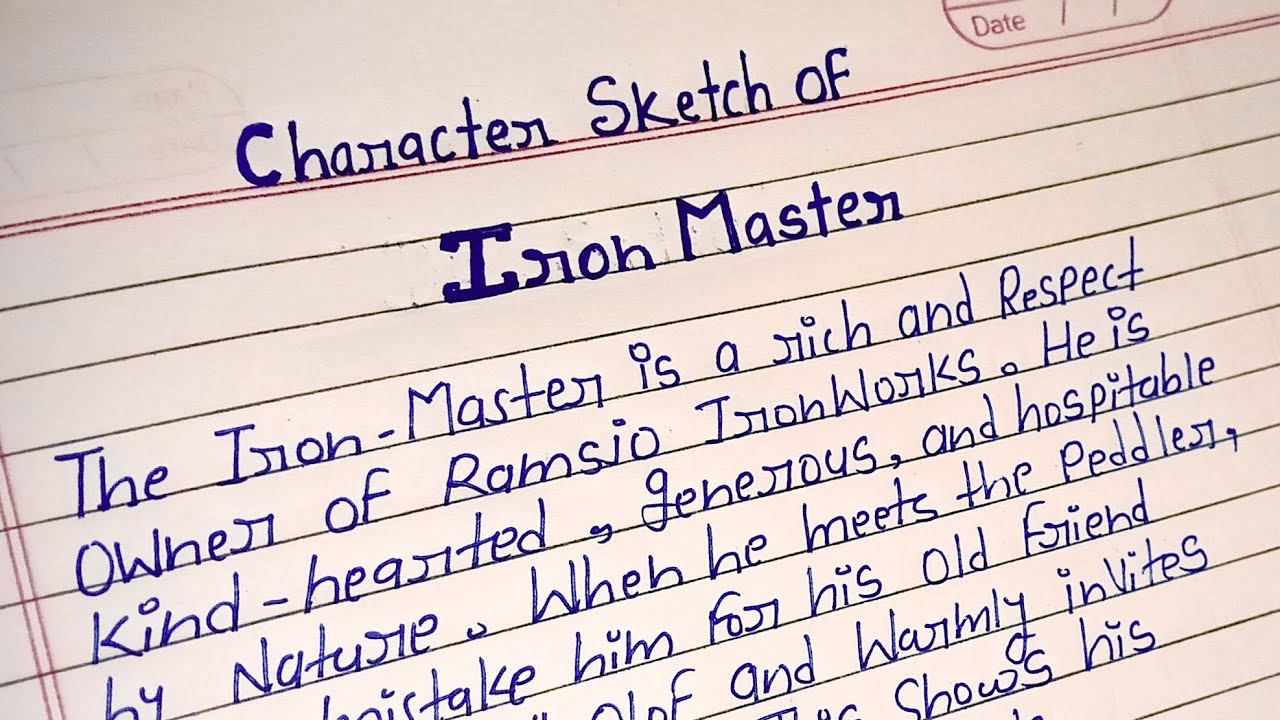 Date / /
Character Sketch of
Iron Master
The Iron-Master is a rich and Respect
Owner of Ramsio IronWorks. He is
Kind-hearted, generous, and hospitable
by Nature. When he meets the Peddler,
mistake him for his old friend
Olof and Warmly invites
Shows his